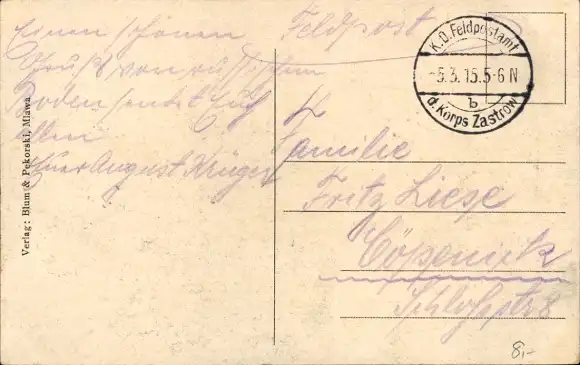 Feldpost
Einen schönen
Gruß von russischem
Boden sendet Euch
Allen
Euer August Krüger
K.D. Feldpostamt
-5.3.15. 5-6 N
b
d. Korps Zastrow
Familie
Fritz Liese
Cöpenick
Schloßstr 8
Verlag: Blum & Pekorski, Mlawa.
8,-